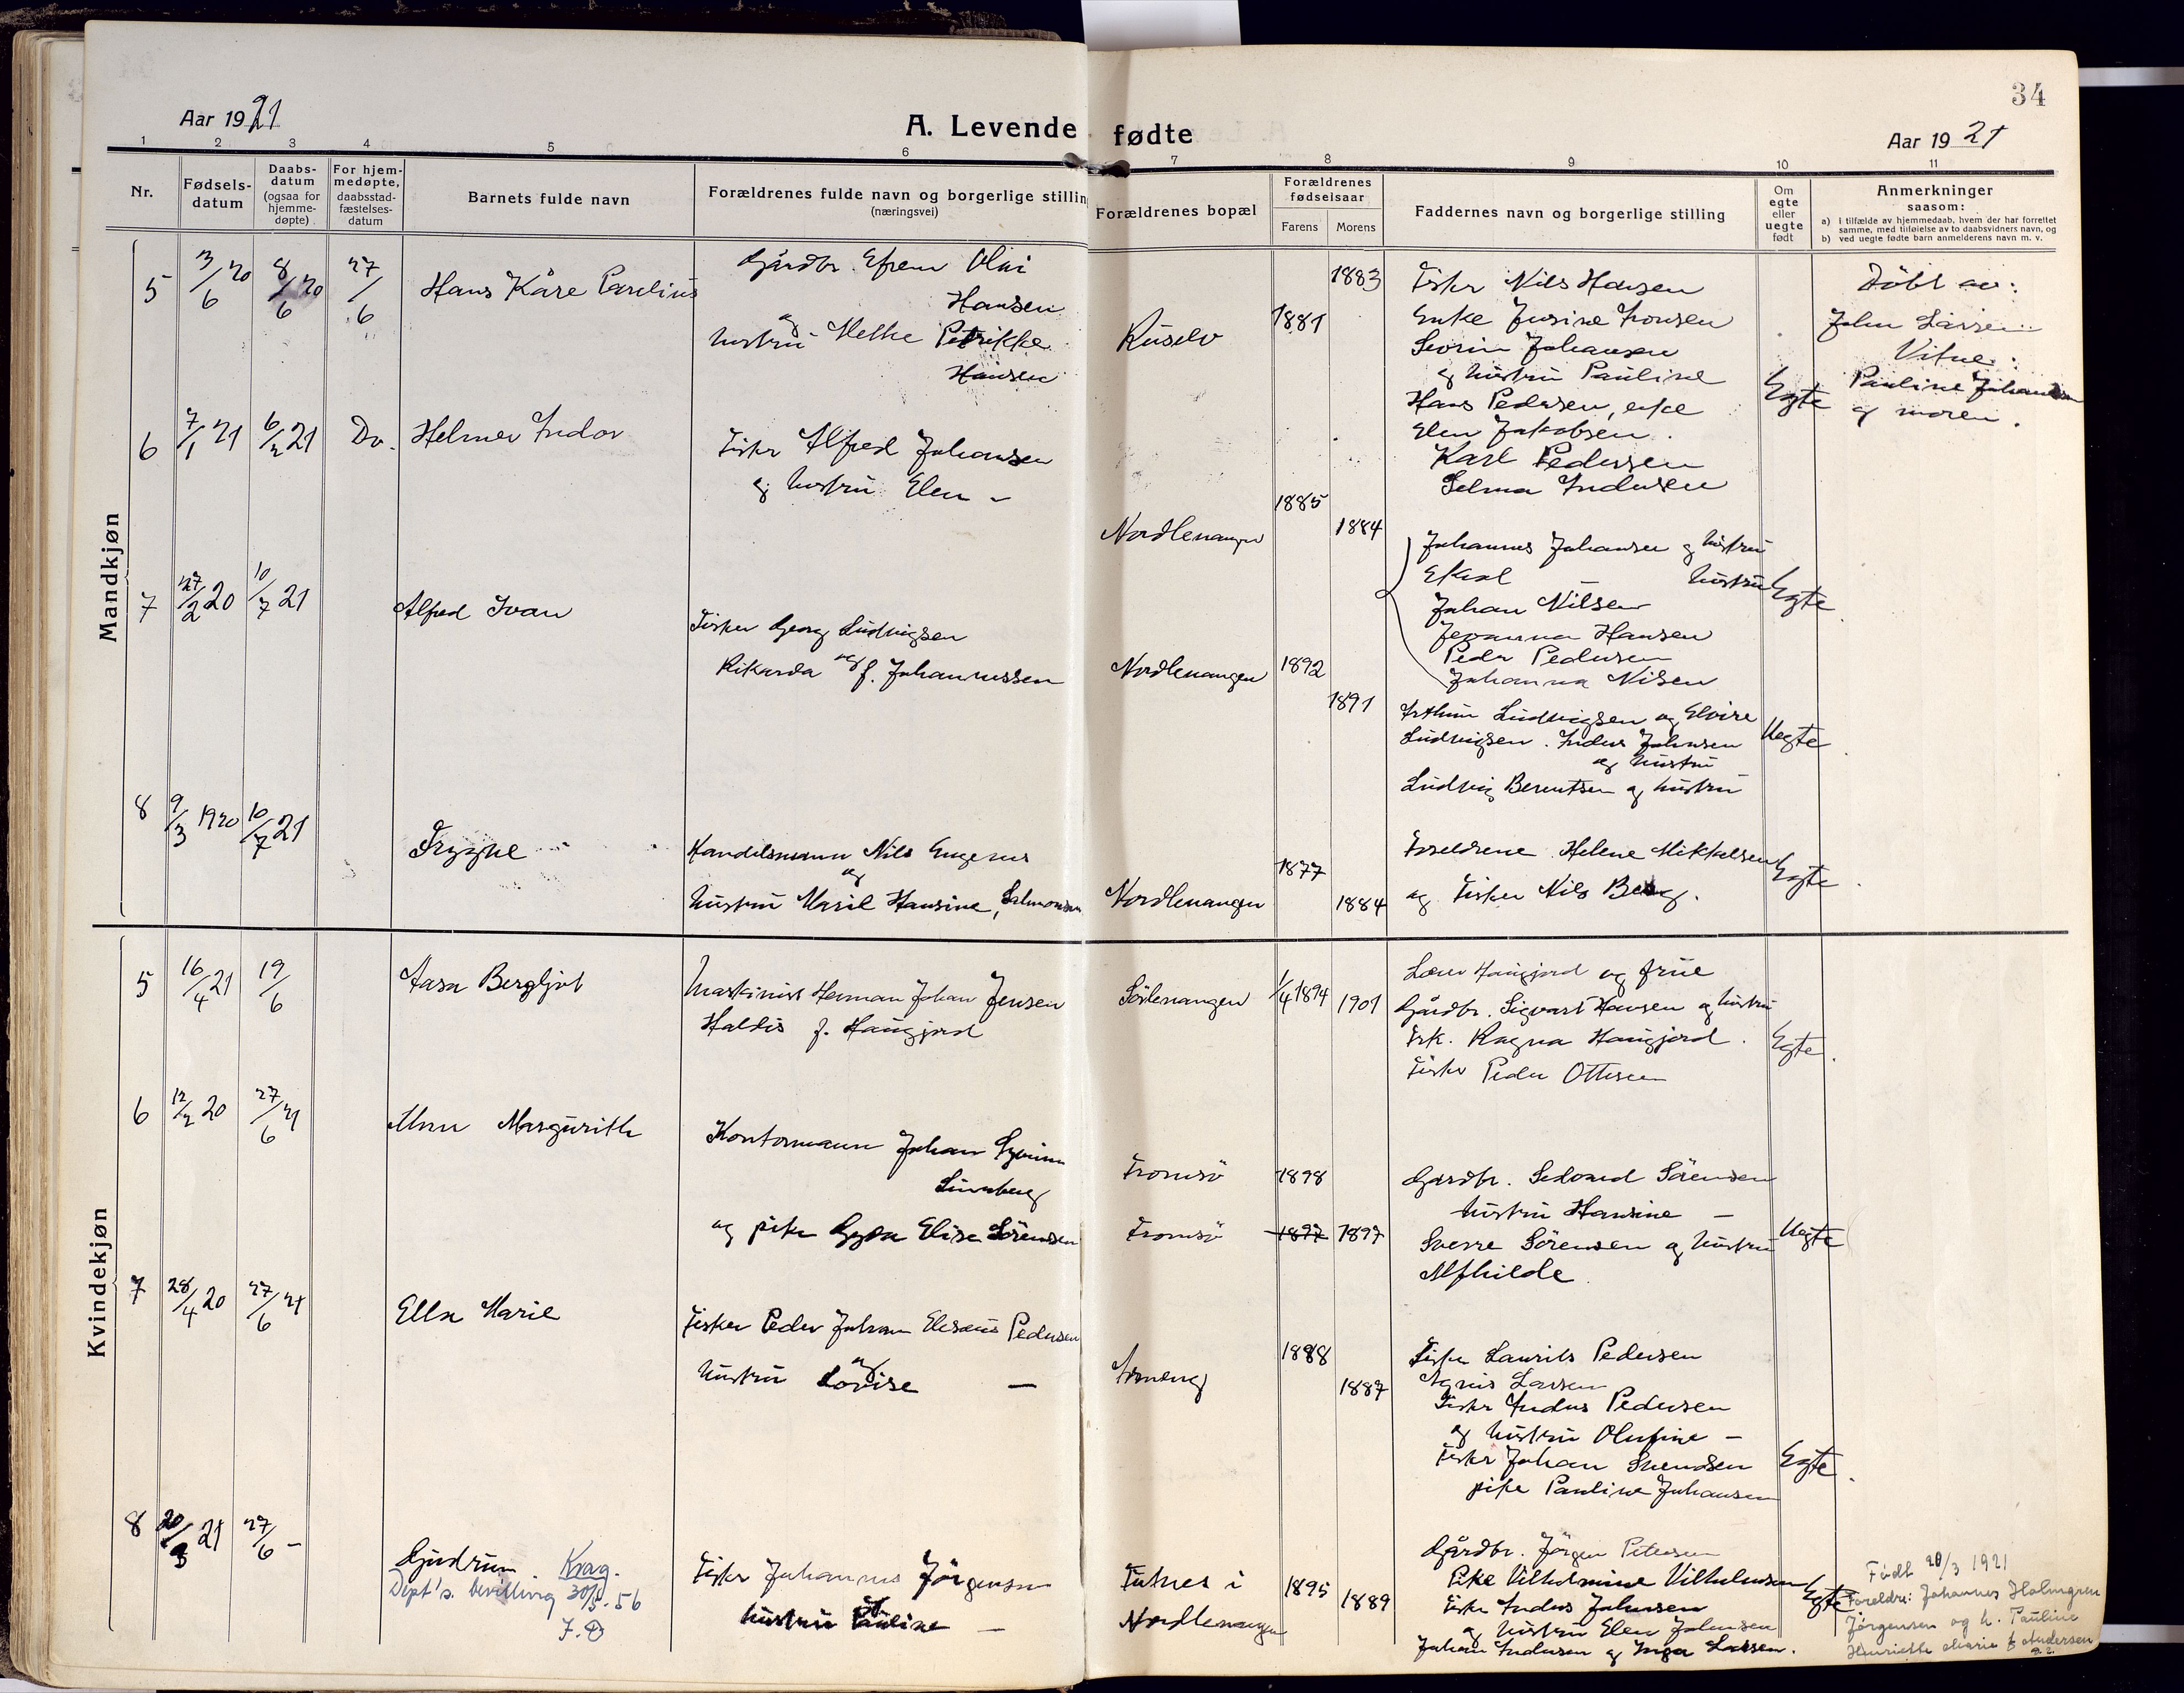 34
Aar 1921
A. Levende fødte
Aar 1921
1 2 3 4 5 6 7 8 9 10 11
Nr.
Fødsels-
datum
Daabs-
datum
(ogsaa for
hjemme-
døpte)
For hjem-
medøpte,
daabsstad-
fæstelses-
datum
Barnets fulde navn
Forældrenes fulde navn og borgerlige stilling
(næringsvei)
Forældrenes bopæl
Forældrenes
fødselsaar
Farens Morens
Faddernes navn og borgerlige stilling
Om
egte
eller
uegte
født
Anmerkninger
saasom:
a) I tilfælde av hjemmedaab, hvem der har forrettet
samme, med tilføielse av to daabsvidners navn, og
b) ved uegte fødte barn anmelderens navn m. v.
Mandkjøn
5 3/6 20 8/6 20 27/6 Hans Kåre Parelius
Gårdbr. Efrem Olai
Hansen
og
hustru Methe Petrikke
Hansen
Kuselv
1881 1883
Fisker Nils Hansen
Enke Jusine
Sevrin Johansen
og hustru Pauline
Hans Pedersen, enke
Elen Jakobsen.
Egte
Døbt av:
John Larsen
Vitne:
Pauline Johansen
og moren.
6 7/1 21 6/2 21 Do. Helmer Indor
Fisker Alfred Johansen
og hustru Elen -
Nordlenangen
1885 1884
Karl Pedersen
Selma Andersen
Johannes Johansen og hustru
hustru
Johan Nilsen
Hansen
Peder Pedersen
Johanna Nilsen
Egte
7 27/2 20 10/7 21 Alfred Ivan
Fisker Georg Ludvigsen
og
Rikarda f. Johannessen
Nordlenangen
1892 1891
Arthur Ludvigsen og Elvire
Ludvigsen. Anders Johnsen
og hustru
Ludvig Berentsen og hustru
Uegte
8 9/3 1920 10/7 21 Trygve
Handelsmann Nils
og
hustru Marie Hansine, Salmonsen
Nordlenangen
1877 1884
Foreldrene. Helene Mikkelsen
og Fisker Nils Berg.
Egte
Kvindekjøn
5 16/4 21 19/6 Aasa Bergljot
Maskinist Herman Johan Jensen
Haldis f. Haugjord
Sörlenangen
1/4 1894 1901
Lærer Haugjord og frue
Gårdbr. Sigvart Hansen og hustru
Frk. Ragna Haugjord.
Fisker Peder Ottesen
Egte.
6 12/2 20 27/6 21 Margurith
Kontormann Johan
og pike Gyda Elise Sörensen
Tromsö 1898
Tromsö 1897 1897
Gårdbr. Sedvard Sörensen
hustru Hansine -
Sverre Sörensen og hustru
Alfhilde.
Uegte
7 28/4 20 27/6 21 Ella Marie
Fisker Peder Johan Elesæus Pedersen
og
hustru Lovise -
1888 1887
Fisker Laurits Pedersen
Agnis Larsen
Fisker Anders Pedersen
og hustru Olufine -
Fisker Johan Svendsen
pike Pauline Johansen
Egte.
8 20/3 21 27/6 - Gudrun. Krag.
Dept's. bevilling 30/5. 56
Fisker Johannes Jörgensen
og
hustru Pauline -
Futnes i
Nordlenangen
1895 1889
Gårdbr. Jörgen Petersen
Pike Vilhelmine Vilhelmsen
Fisker Anders Johnsen
og hustru Elen Johnsen
Johan Andersen og Inga Larsen.
Egte
Födt 20/3 1921
Foreldre: Johannes Holmgren
Jørgensen og h. Pauline
Henriette Marie f. Andersen